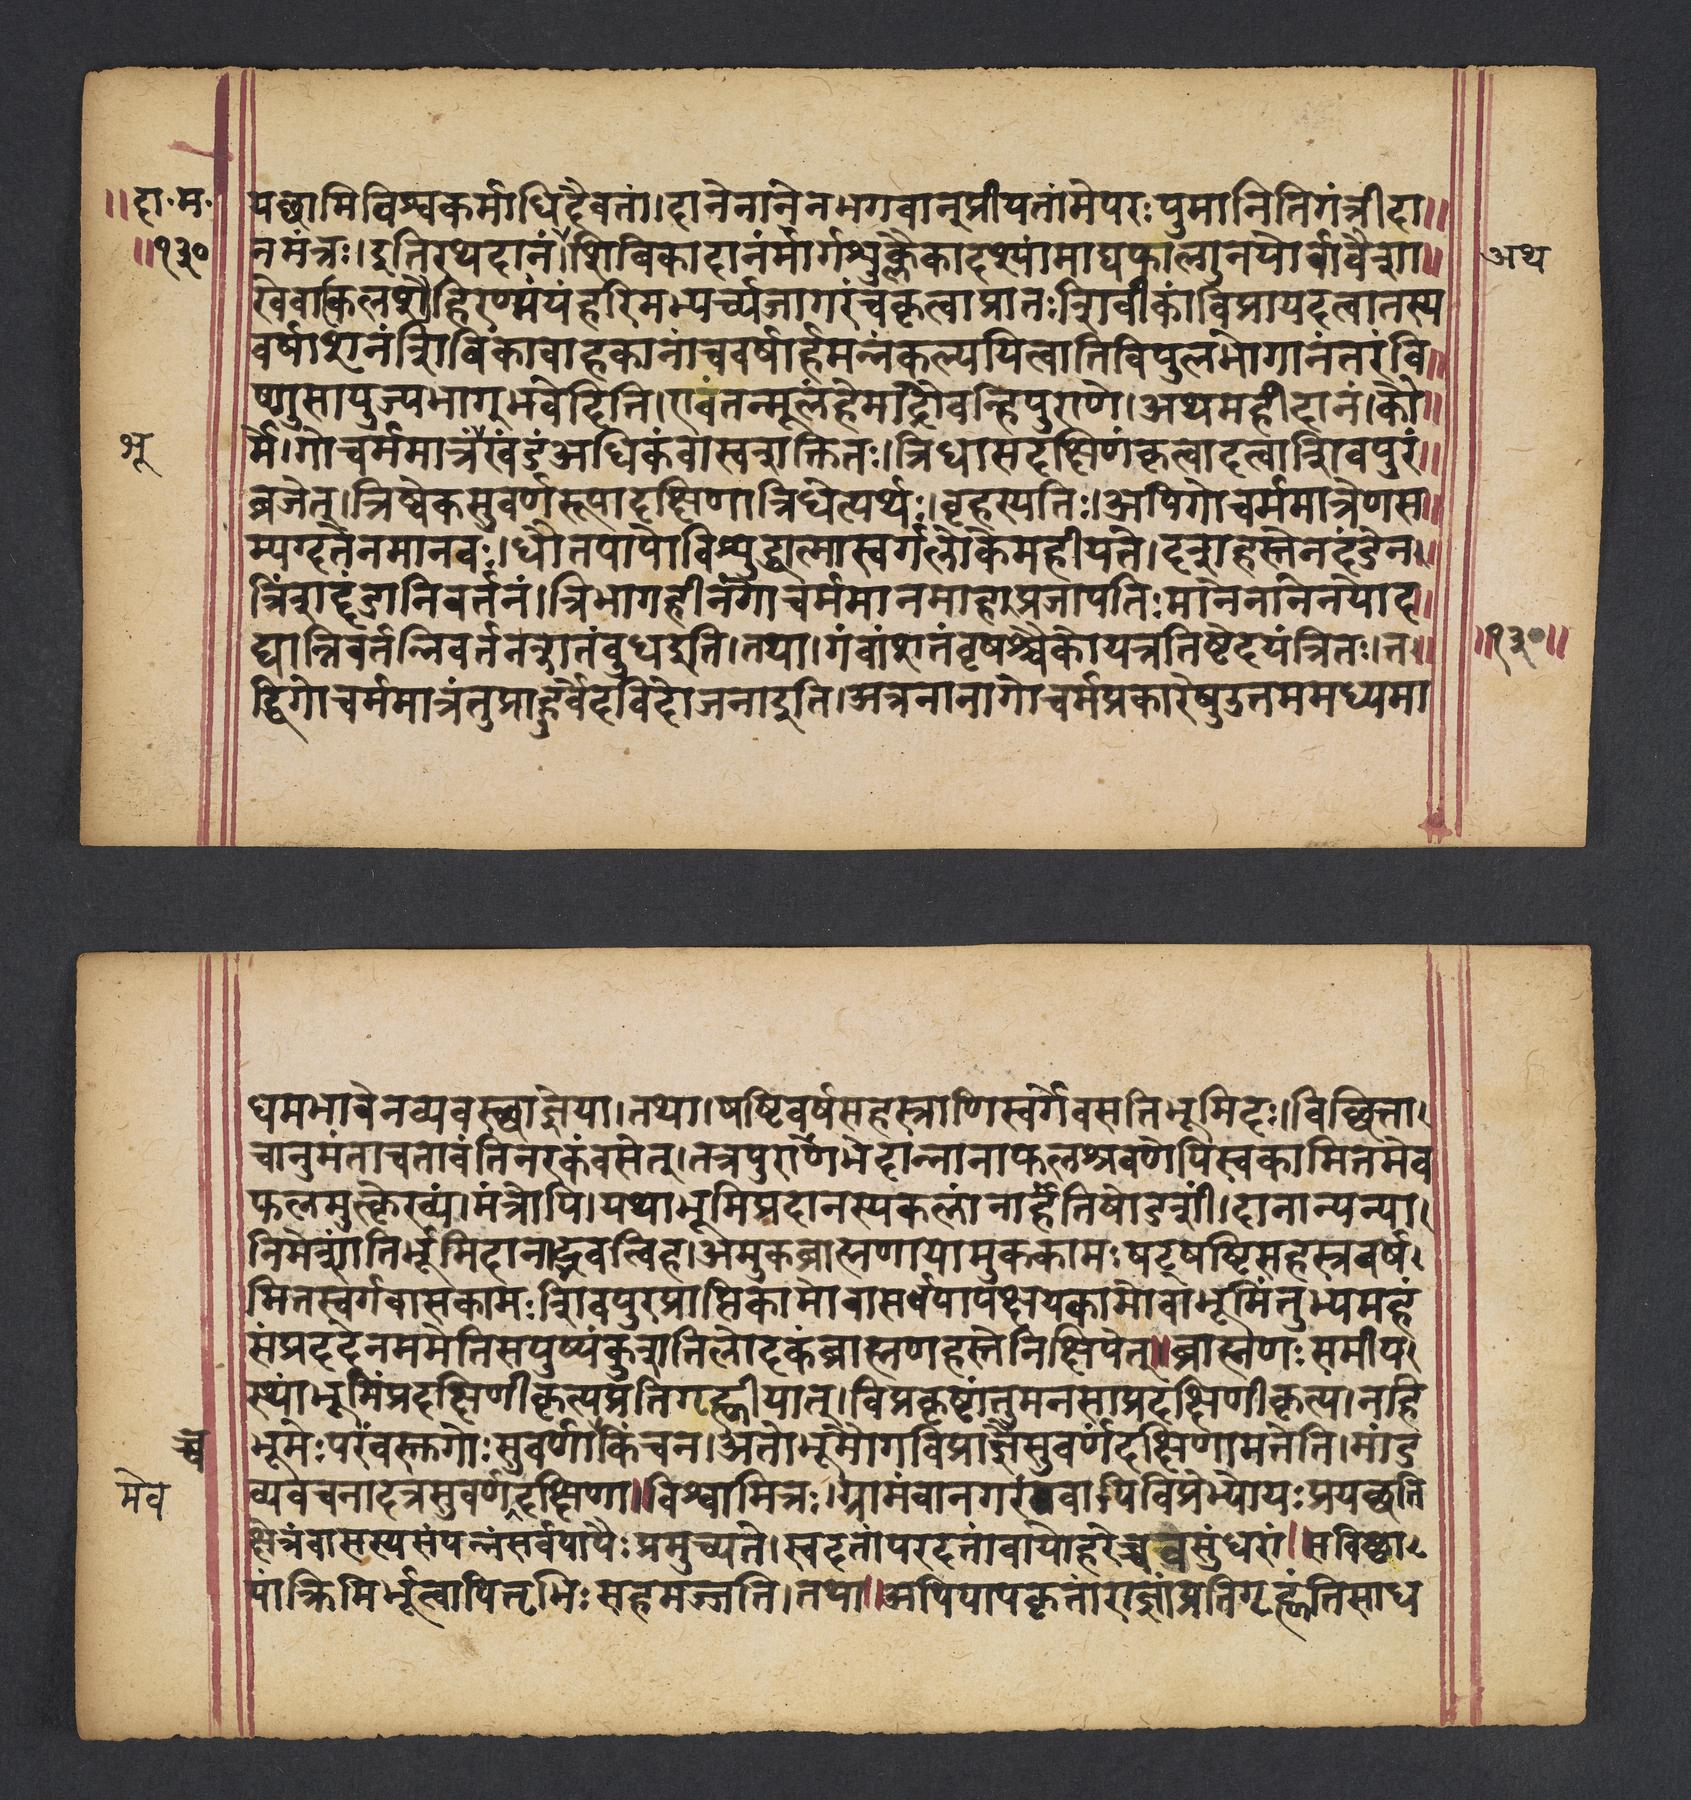 ॥दा॰म॰
॥१३०
यछामिविश्वकर्माधिदैवतां।दानेनानेनभगवान्प्रीयतांमेपरःपुमानितिगंत्रीदा॥
नमंत्रः।इतिरथदानं।शिबिकादानंमार्गशुक्लैकादश्यांमाघफाल्गुनयोर्वावैशा॥
अथ
खेवाकिलशौहिरण्मयंहरिमभ्यर्च्यजागरंचकृत्वाप्रातःशिवीकांविप्रायदत्वातस्य
वर्षाशनंशिबिकावाहकानांचवर्षार्हमन्नंकल्पयित्वातिविपुलभोगानंतरंवि॥
ष्णुसायुज्यभाग्भवेदिति।एवंतन्मूलंहेमाद्रौवन्हिपुराणे।अथमहीदानं।कौ॥
भू
र्मे।गोचर्ममात्रंखंडंअधिकंवास्वशक्तितः।त्रिधासदक्षिणंकृत्वादत्वाशिवपुरं॥
व्रजेत्।त्रिष्वेकसुवर्णरूपादक्षिणात्रिधेत्यर्थः।बृहस्पतिः।अपिगोचर्ममात्रेणस॥
म्यग्दत्तेनमानवः।धौतपापोविशुद्धात्मास्वर्गलोकेमहीयते।दशहस्तेनदंडेन॥
त्रिंशद्दंडानिवर्तनं।त्रिभागहीनंगोचर्ममानमाहप्रजापतिःमानेनानेनयोद॥
द्यान्निवर्तन्निवर्तनशतंबुधइति।तथा।गवांशतंवृषश्चैकोयत्रतिष्टेदयंत्रितः।त॥
॥१३०॥
द्धिगोचर्ममात्रंतुप्राहुर्वेदविदोजनाइति।अत्रनानागोचर्मप्रकारेषुउत्तममध्यमा
धमभावेनव्यवस्थाज्ञेया।तथा।षष्टिवर्षसहस्त्राणिस्वर्गेवसतिभूमिदः।विछित्ता।
चानुमंताचतावंतिनरकंवसेत्।तत्रपुराणभेदान्नानाफलश्रवणेपिस्वकामितमेव
फलमुत्कृैख्यं।मंत्रोपि।यथाभूमिप्रदानस्यकलांनार्हंतिषोडशीं।दानान्यन्या।
निमेशांतिर्भूमिदानाद्भवत्विह।अमुकब्राह्मणायामुककामःषट्षष्टिसहस्त्रवर्ष।
मितस्वर्गवासकामःशिवपुरप्राप्तिकामोवासर्वपापक्षयकामोवाभूमिंतुभ्यमहं
संप्रददेनममेतिसपुष्पंकुशतिलोदकंब्राह्मणहस्तेनिक्षिपेत्॥ब्राह्मणःसमीप।
स्थांभूमिंप्रदक्षिणीकृत्यप्रतिगृह्णीयात्।विप्रकृष्टांतुमनसाप्रदक्षिणीकृत्य।नहि
च्च
भूमेःपरंवस्तुगोःसुवर्णाकिंचन।अतोभूमौगविप्राज्ञैसुवर्णंदक्षिणामतेति।मांड
मेव
व्यवचनादत्रसुवर्णंदक्षिणा॥विश्वामित्रः।ग्रामंवानगरंवापिविप्रेभ्योयःप्रयछति
क्षेत्रंवासस्यसंपन्नंसर्वपापैःप्रमुच्यते।स्वदत्तांपरदत्तांवायोहरेच्चवसुंधरां॥सविष्ठा।
यांक्रिमिर्भूत्वापितृभिःसहमज्जति।तथा॥अपिपापकृतांराज्ञांप्रतिगृह्णंतिसाध